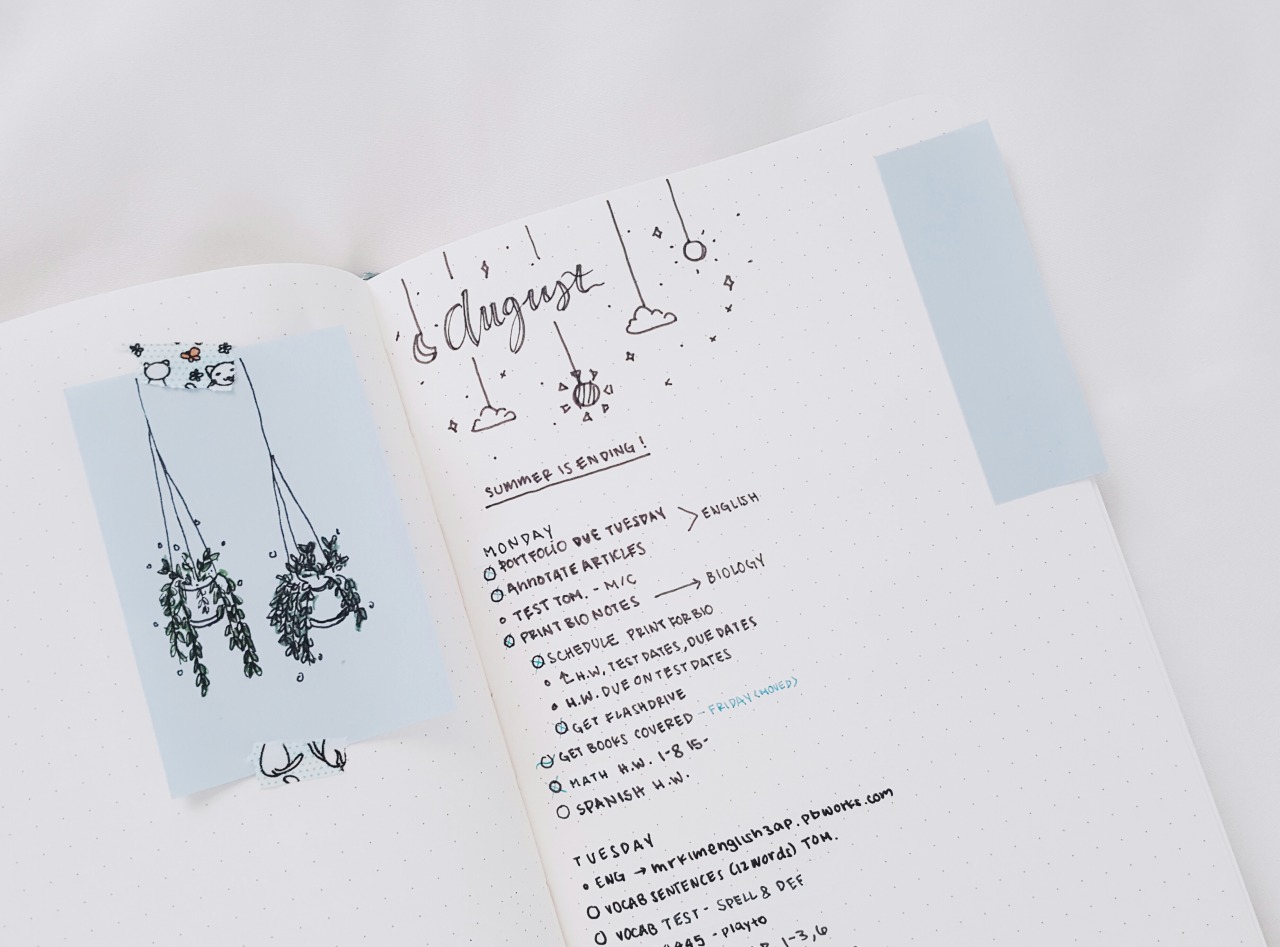 august
SUMMER IS ENDING!
MONDAY
PORTFOLIO DUE TUESDAY > ENGLISH
ANNOTATE ARTICLES
TEST TOM. - M/C
PRINT BIO NOTES → BIOLOGY
SCHEDULE PRINT FOR BIO
↑ H.W, TEST DATES, DUE DATES
H.W. DUE ON TEST DATES
GET FLASHDRIVE
GET BOOKS COVERED - FRIDAY (MOVED)
MATH H.W. 1-8 15-
SPANISH H.W.
TUESDAY
ENG → mrkimenglish3ap.pbworks.com
VOCAB SENTENCES (12 words) TOM.
VOCAB TEST - SPELL & DEF
445 - playto
1-3,6